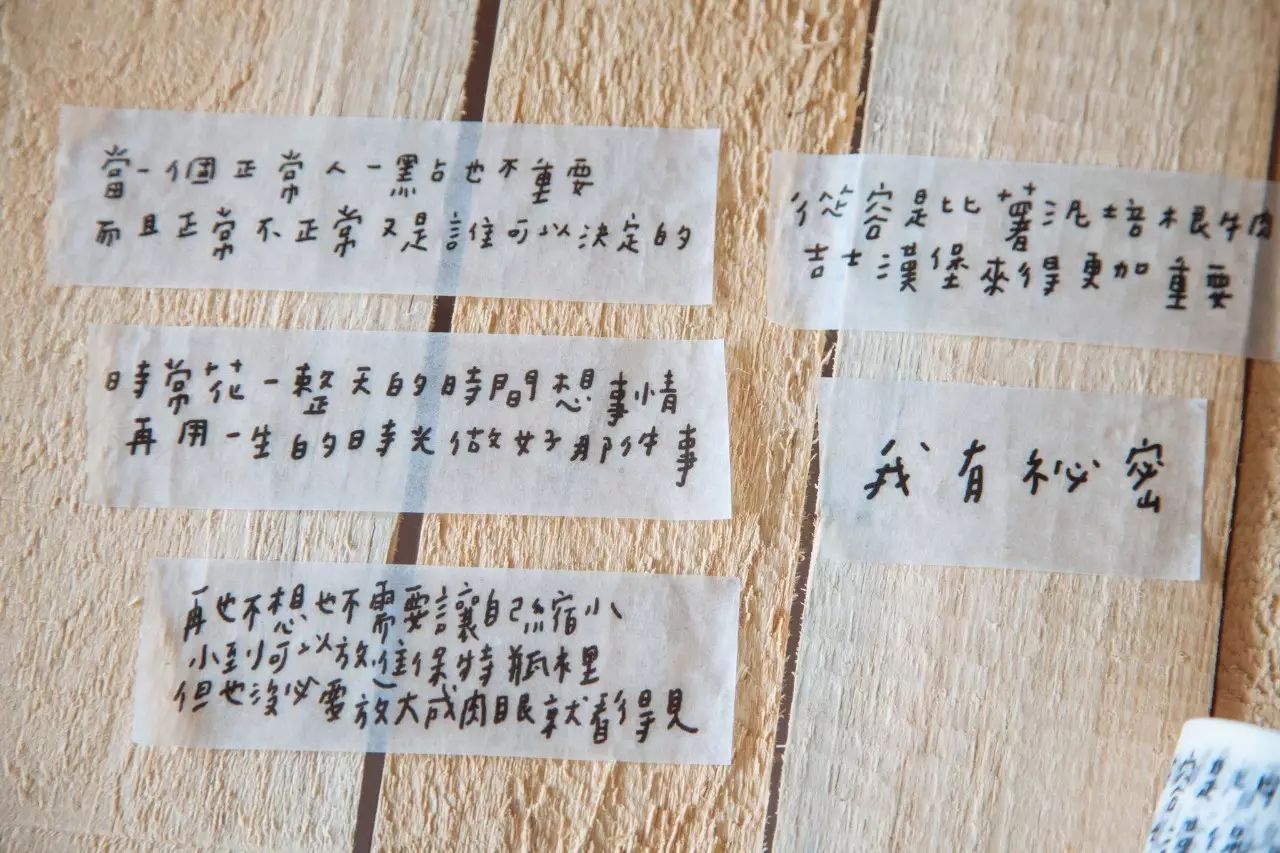 當一個正常人一點也不重要
而且正常不正常又是誰可以決定的
時常花一整天的時間想事情
再用一生的時光做好那件事
再也不想也不需要讓自己縮小
小到可以放進保特瓶裡
但也沒必要放大成肉眼就看得見
從容是比薯泥培根牛肉
吉士漢堡來得更加重要
我有祕密